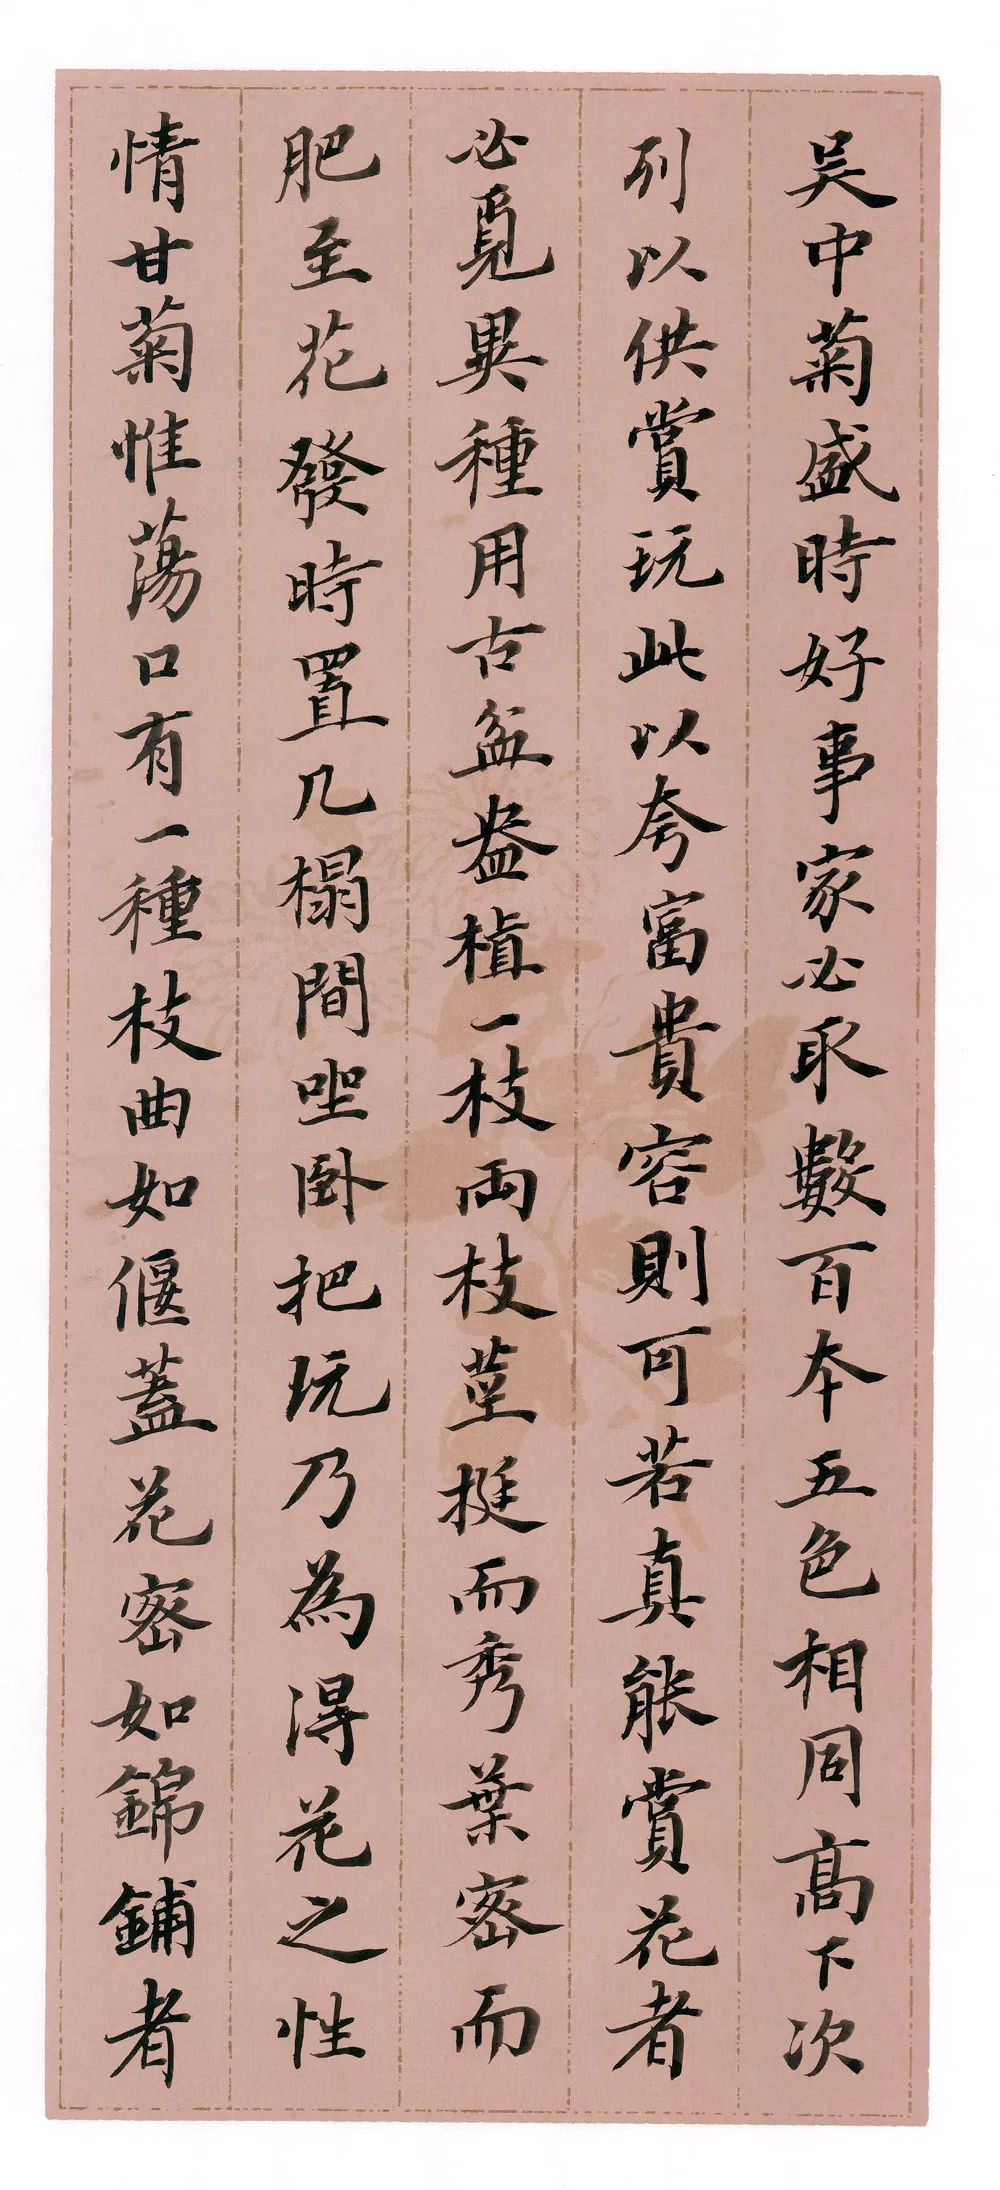 吴中菊盛時好事家必取數百本五色相同高下次
列以供賞玩此以夸富貴容則可若真能賞花者
必覓異種用古盆盎植一枝兩枝莖挺而秀葉密而
肥至花發時置几榻間坐卧把玩乃為得花之性
情甘菊惟蕩口有一種枝曲如偃蓋花密如錦鋪者